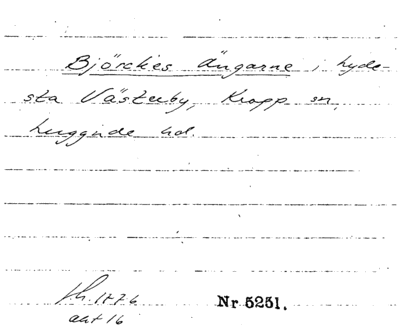 Björckes Ängarne i hyde-
sta Västerby, Kropp sn,
Luggude hd.
1876
akt 16
Nr 5251.